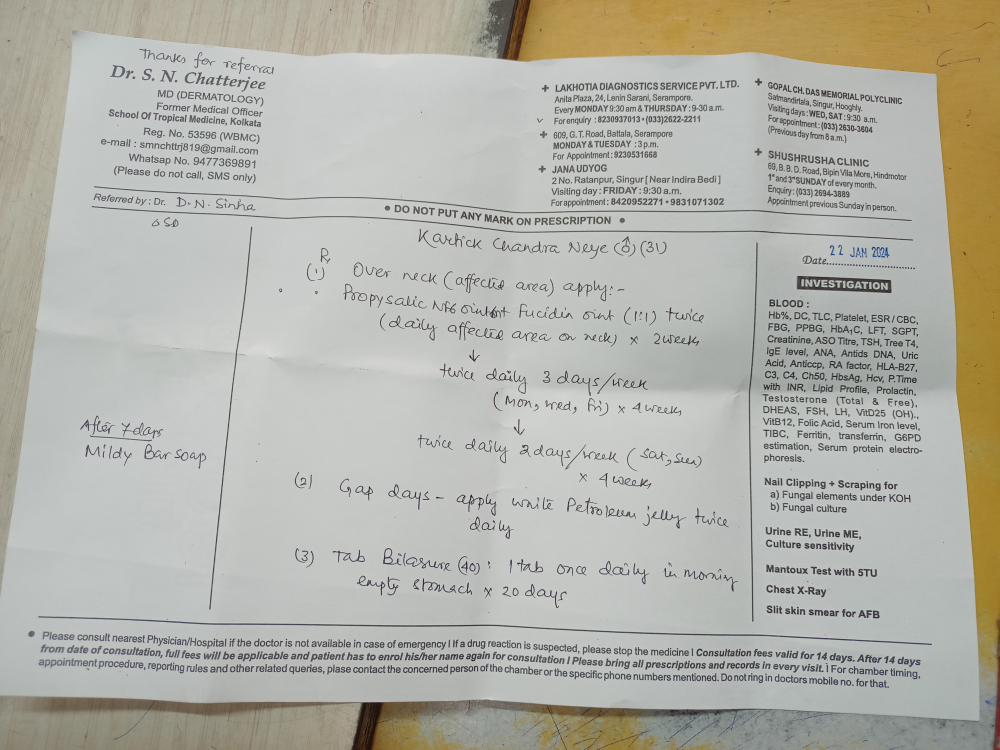 Thanks for referral
Dr. S. N. Chatterjee
MD (DERMATOLOGY)
Former Medical Officer
School Of Tropical Medicine, Kolkata
Reg. No. 53596 (WBMC)
e-mail : smnchttrj819@gmail.com
Whatsap No. 9477369891
(Please do not call, SMS only)
+ LAKHOTIA DIAGNOSTICS SERVICE PVT. LTD.
Anita Plaza, 24, Lenin Sarani, Serampore.
Every MONDAY 9:30 am & THURSDAY : 9-30 a.m.
For enquiry : 8230937013 • (033)2622-2211
+ 609, G. T. Road, Battala, Serampore
MONDAY & TUESDAY : 3 p.m.
For Appointment : 9230531668
+ JANA UDYOG
2 No. Ratanpur, Singur [ Near Indira Bedi ]
Visiting day : FRIDAY : 9:30 a.m.
For appointment : 8420952271 • 9831071302
+ GOPAL CH. DAS MEMORIAL POLYCLINIC
Satmandirtala, Singur, Hooghly.
Visiting days : WED, SAT : 9:30 a.m.
For appointment : (033) 2630-3604
(Previous day from 8 a.m.)
+ SHUSHRUSHA CLINIC
69, B. B. D. Road, Bipin Vila More, Hindmotor
1st and 3rd SUNDAY of every month.
Enquiry : (033) 2694-3889
Appointment previous Sunday in person.
Referred by : Dr. D. N. Sinha
• DO NOT PUT ANY MARK ON PRESCRIPTION •
OSD
Kartick Chandra Neye (31)
Date 22 JAN 2024
Rx
(1) Over neck (affected area) apply :-
Propysalic NF6 ointment Fucidin oint (1:1) twice
(daily affected area on neck) x 2 weeks
↓
twice daily 3 days/week
(Mon, Wed, Fri) x 4 weeks
↓
twice daily 2 days/week (Sat, Sun)
x 4 weeks
(2) Gap days - apply white Petroleum jelly twice
daily
(3) Tab Bilasure (40) : 1 tab once daily in morning
empty stomach x 20 days
After 7 days
Mildy Bar soap
INVESTIGATION
BLOOD :
Hb%, DC, TLC, Platelet, ESR / CBC,
FBG, PPBG, HbA1C, LFT, SGPT,
Creatinine, ASO Titre, TSH, Tree T4,
IgE level, ANA, Antids DNA, Uric
Acid, Anticcp, RA factor, HLA-B27,
C3, C4, Ch50, HbsAg, Hcv, P.Time
with INR, Lipid Profile, Prolactin,
Testosterone (Total & Free),
DHEAS, FSH, LH, VitD25 (OH).,
VitB12, Folic Acid, Serum Iron level,
TIBC, Ferritin, transferrin, G6PD
estimation, Serum protein electro-
phoresis.
Nail Clipping + Scraping for
a) Fungal elements under KOH
b) Fungal culture
Urine RE, Urine ME,
Culture sensitivity
Mantoux Test with 5TU
Chest X-Ray
Slit skin smear for AFB
• Please consult nearest Physician/Hospital if the doctor is not available in case of emergency I If a drug reaction is suspected, please stop the medicine I Consultation fees valid for 14 days. After 14 days
from date of consultation, full fees will be applicable and patient has to enrol his/her name again for consultation I Please bring all prescriptions and records in every visit. I For chamber timing,
appointment procedure, reporting rules and other related queries, please contact the concerned person of the chamber or the specific phone numbers mentioned. Do not ring in doctors mobile no. for that.